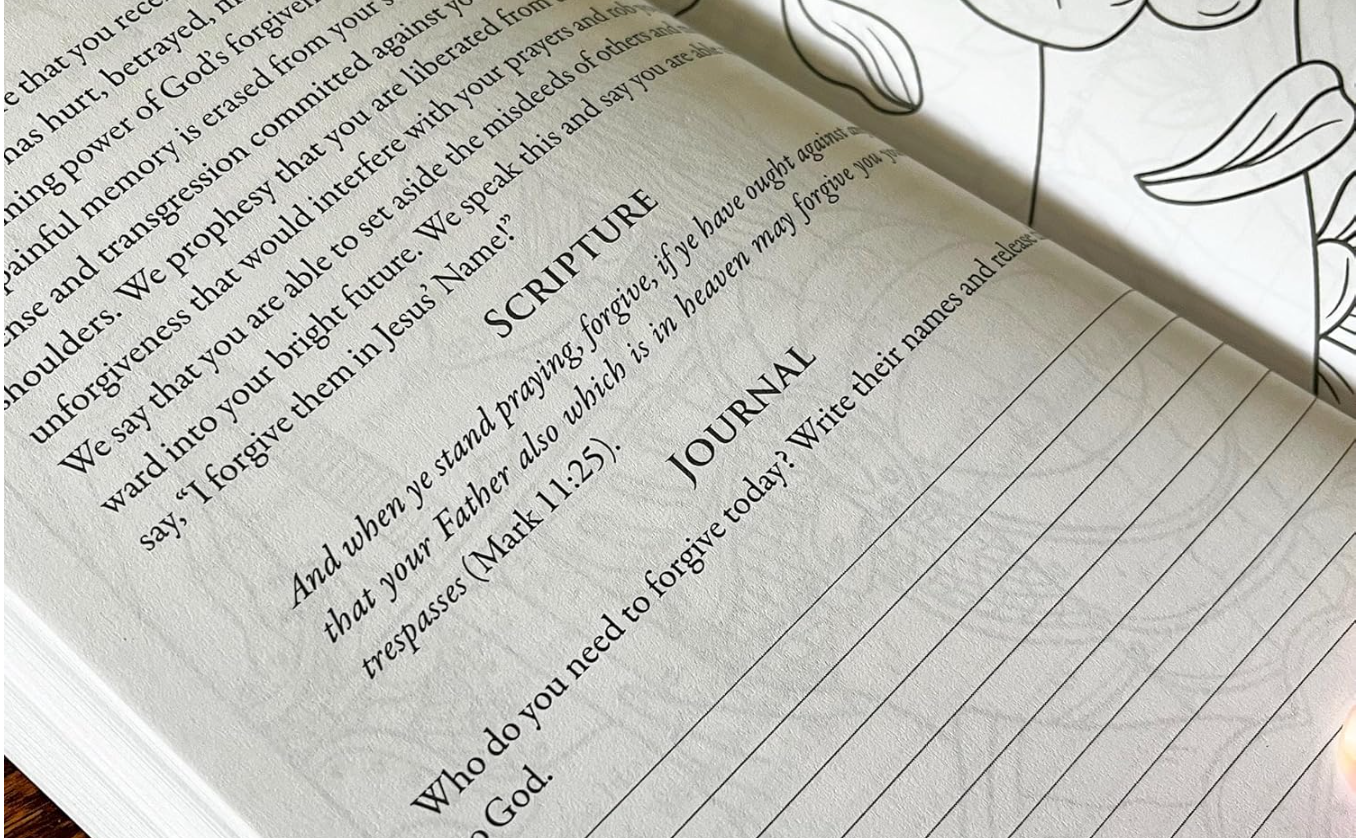 that you rece
has hurt, betrayed,
power of God's
painful memory is erased from your
and transgression committed against
shoulders. We prophesy that you are liberated from
unforgiveness that would interfere with your prayers and
We say that you are able to set aside the misdeeds of others and
ward into your bright future. We speak this and say you are able
say, “I forgive them in Jesus’ Name!”
SCRIPTURE
And when ye stand praying, forgive, if ye have ought against
that your Father also which is in heaven may forgive you
trespasses (Mark 11:25).
JOURNAL
Who do you need to forgive today? Write their names and release
God.